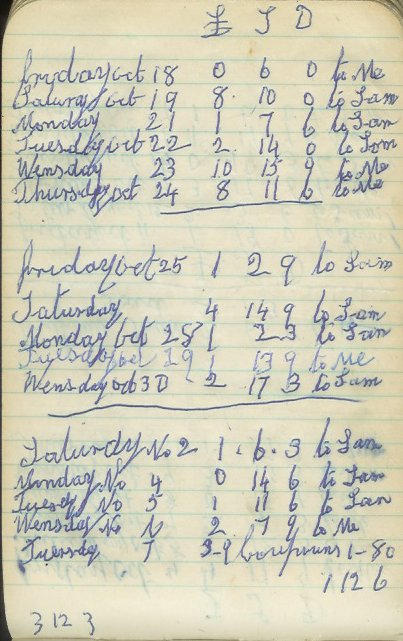 £ S D
friday oct 18 0 6 0 to Me
Saturday oct 19 8 10 0 to Sam
Monday 21 1 7 6 to Sam
Tuesday oct 22 2 14 0 to Sam
Wensday 23 10 15 9 to Me
Thursday oct 24 8 11 6 to Me
friday oct 25 1 2 9 to Sam
Saturday 4 14 9 to Sam
Monday oct 28 1 2 3 to Sam
Tuesday oct 29 1 13 9 to Me
Wensday oct 30 2 17 3 to Sam
Saturdy No 2 1. 6. 3 to Sam
Monday No 4 0 14 6 to Sam
Tuesdy No 5 1 11 6 to Sam
Wensdy No 6 2 7 9 to Me
Tuesday 7 3-9 1-80
1 12 6
3 12 3